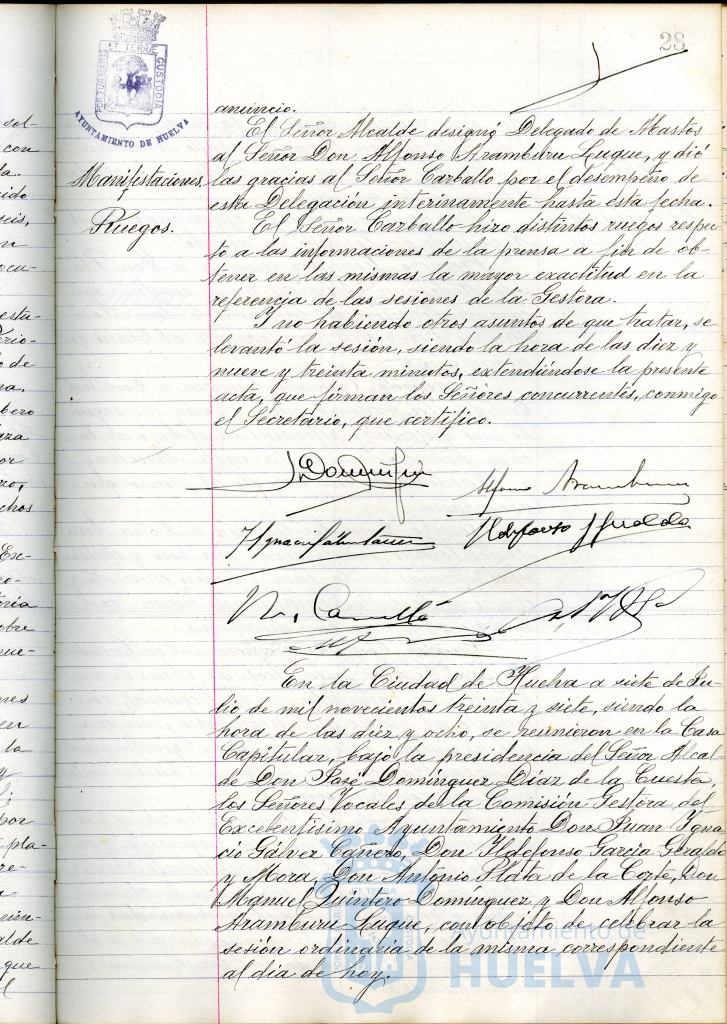 28
PORTUS MARIS
ET TERRÆ
CUSTODIA
AYUNTAMIENTO DE HUELVA
Manifestaciones.
Ruegos.
anuncio.
El Señor Alcalde designó Delegado de Abastos
al Señor Don Alfonso Aramburu Luque, y dió
las gracias al Señor Carballo por el desempeño de
esta Delegación interinamente hasta esta fecha.
El Señor Carballo hizo distintos ruegos respec-
to a las informaciones de la prensa a fin de ob-
tener en las mismas la mayor exactitud en la
referencia de las sesiones de la Gestora.
Y no habiendo otros asuntos de que tratar, se
levantó la sesión, siendo la hora de las diez y
nueve y treinta minutos, extendiéndose la presente
acta, que firman los Señores concurrentes, conmigo
el Secretario, que certifico.
Alfonso Aramburu
Ildefonso Giraldo
En la Ciudad de Huelva a siete de Ju-
lio de mil novecientos treinta y siete, siendo la
hora de las diez y ocho, se reunieron en la Casa
Capitular, bajo la presidencia del Señor Alcal-
de Don José Domínguez Díaz de la Cuesta,
los Señores Vocales de la Comisión Gestora del
Excelentísimo Ayuntamiento Don Juan Ygna
cio Gálvez Cañero, Don Yldefonso García Geraldo
y Mora, Don Antonio Plata de la Corte, Don
Manuel Quintero Domínguez y Don Alfonso
Aramburu Luque, con objeto de celebrar la
sesión ordinaria de la misma correspondiente
al día de hoy.
Ayuntamiento de
HUELVA